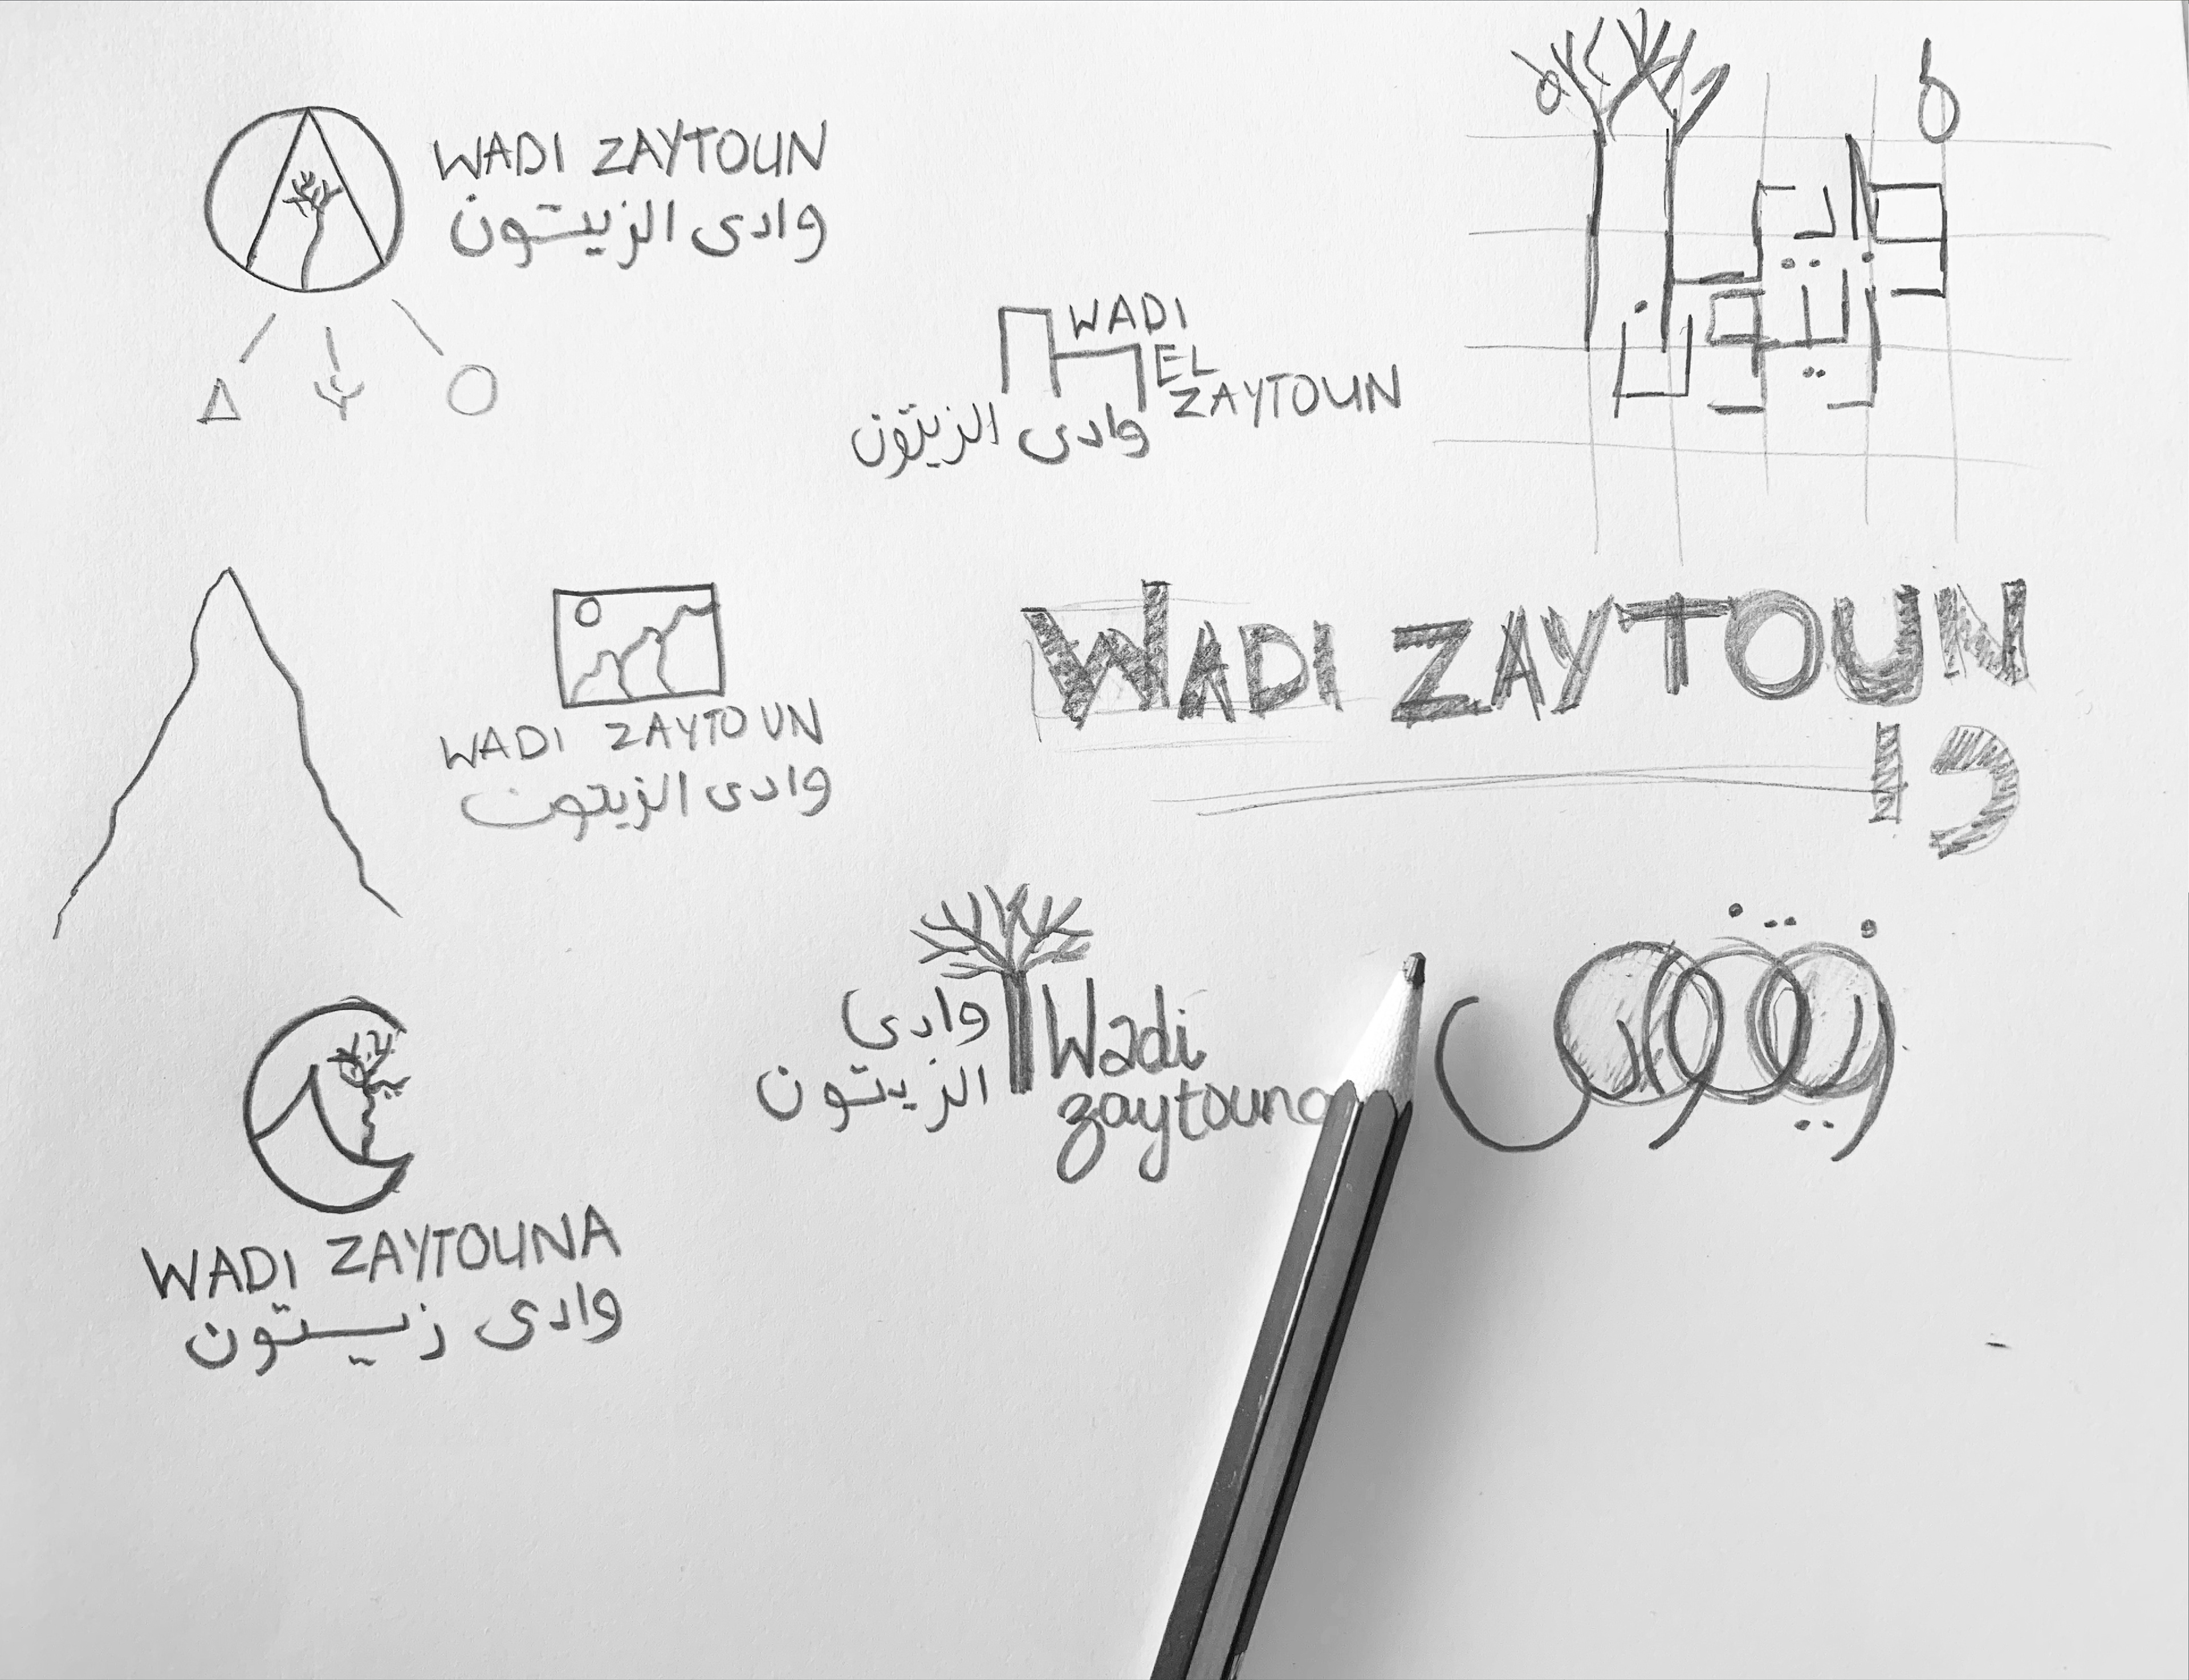 WADI ZAYTOUN
وادى الزيتون
WADI
EL
ZAYTOUN
وادى الزيتون
WADI ZAYTOUN
وادى الزيتون
WADI ZAYTOUN
وا
وادى
الزيتون
Wadi
zaytouna
WADI ZAYTOUNA
وادى زيتون